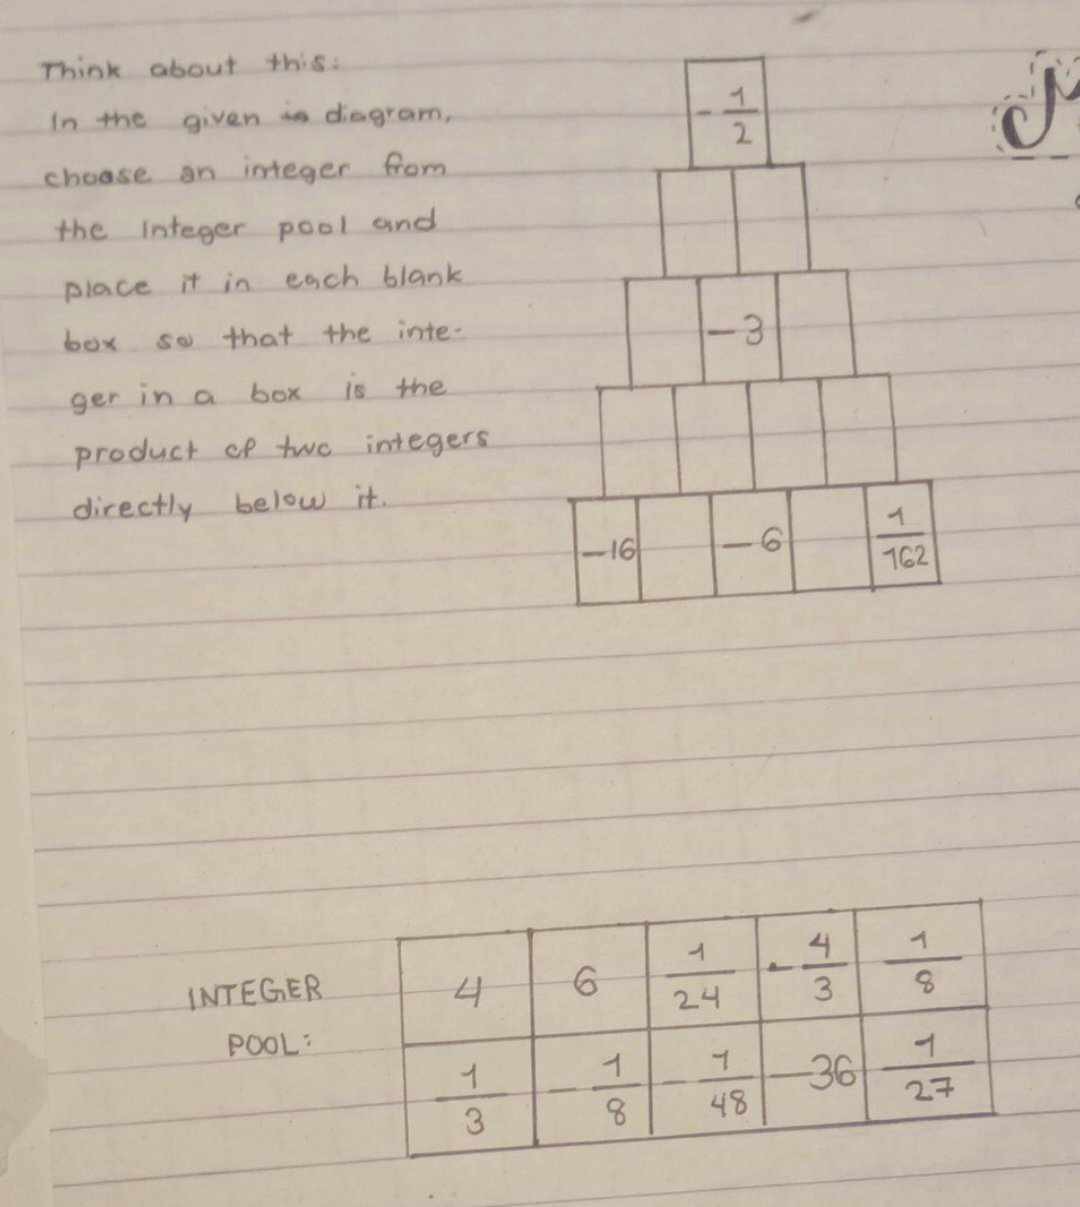 Think about this:
In the given diagram,
choose an integer from
the integer pool and
place it in each blank
box so that the inte-
ger in a box is the
product of two integers
directly below it.
-1/2
-3
-16 -6 1/162
INTEGER
POOL:
4 6 1/24 -4/3 1/8
1/3 -1/8 -1/48 -36 1/27